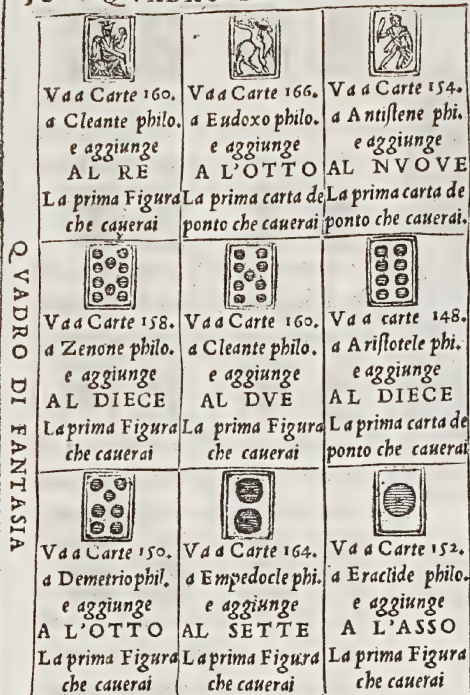 QVADRO DI FANTASIA
Va a Carte 160.
a Cleante philo.
e aggiunge
AL RE
La prima Figura
che cauerai
Va a Carte 166.
a Eudoxo philo.
e aggiunge
A L'OTTO
La prima carta de
ponto che cauerai
Va a Carte 154.
a Antiſtene phi.
e aggiunge
AL NVOVE
La prima carta de
ponto che cauerai.
Va a Carte 158.
a Zenone philo.
e aggiunge
AL DIECE
La prima Figura
che cauerai
Va a Carte 160.
a Cleante philo.
e aggiunge
AL DVE
La prima Figura
che cauerai
Va a carte 148.
a Ariſtotele phi.
e aggiunge
AL DIECE
La prima carta de
ponto che cauerai
Va a Carte 150.
a Demetrio phil.
e aggiunge
A L'OTTO
La prima Figura
che cauerai
Va a Carte 164.
a Empedocle phi.
e aggiunge
AL SETTE
La prima Figura
che cauerai
Va a Carte 152.
a Eraclide philo.
e aggiunge
A L'ASSO
La prima Figura
che cauerai